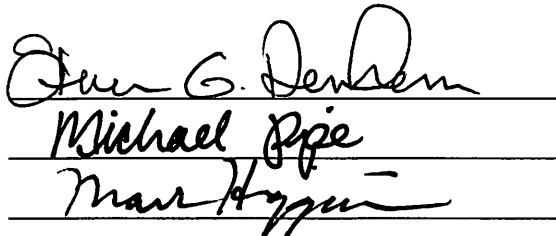 Steven G. Denham
Michael Pipe
Mark Higgins